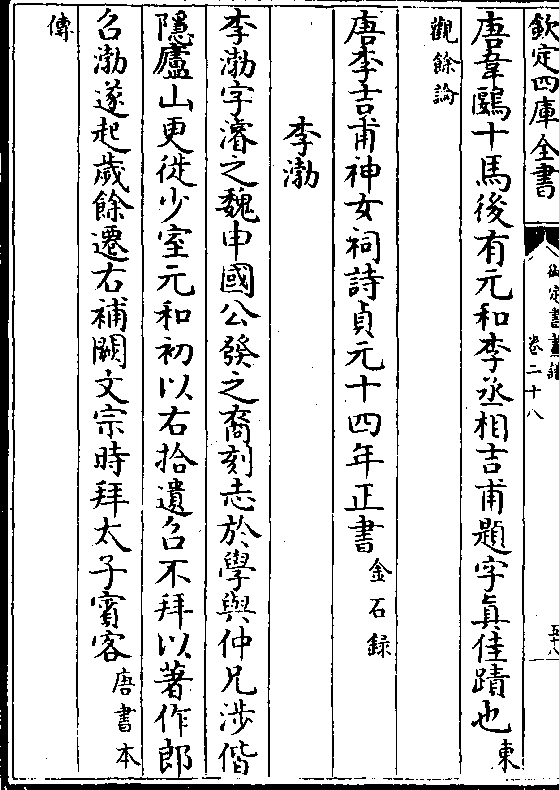 欽定四庫全書
御定書畫譜
卷二十八
五十八
唐韋鷗十馬後有元和李丞相吉甫題字真佳蹟也東
觀餘論
唐李吉甫神女祠詩貞元十四年正書金石録
李渤
李渤字濬之魏申國公發之裔刻志於學與仲兄涉偕
隱廬山更徙少室元和初以右拾遺召不拜以著作郎
召渤遂起歲餘遷右補闕文宗時拜太子賓客唐書本
傳